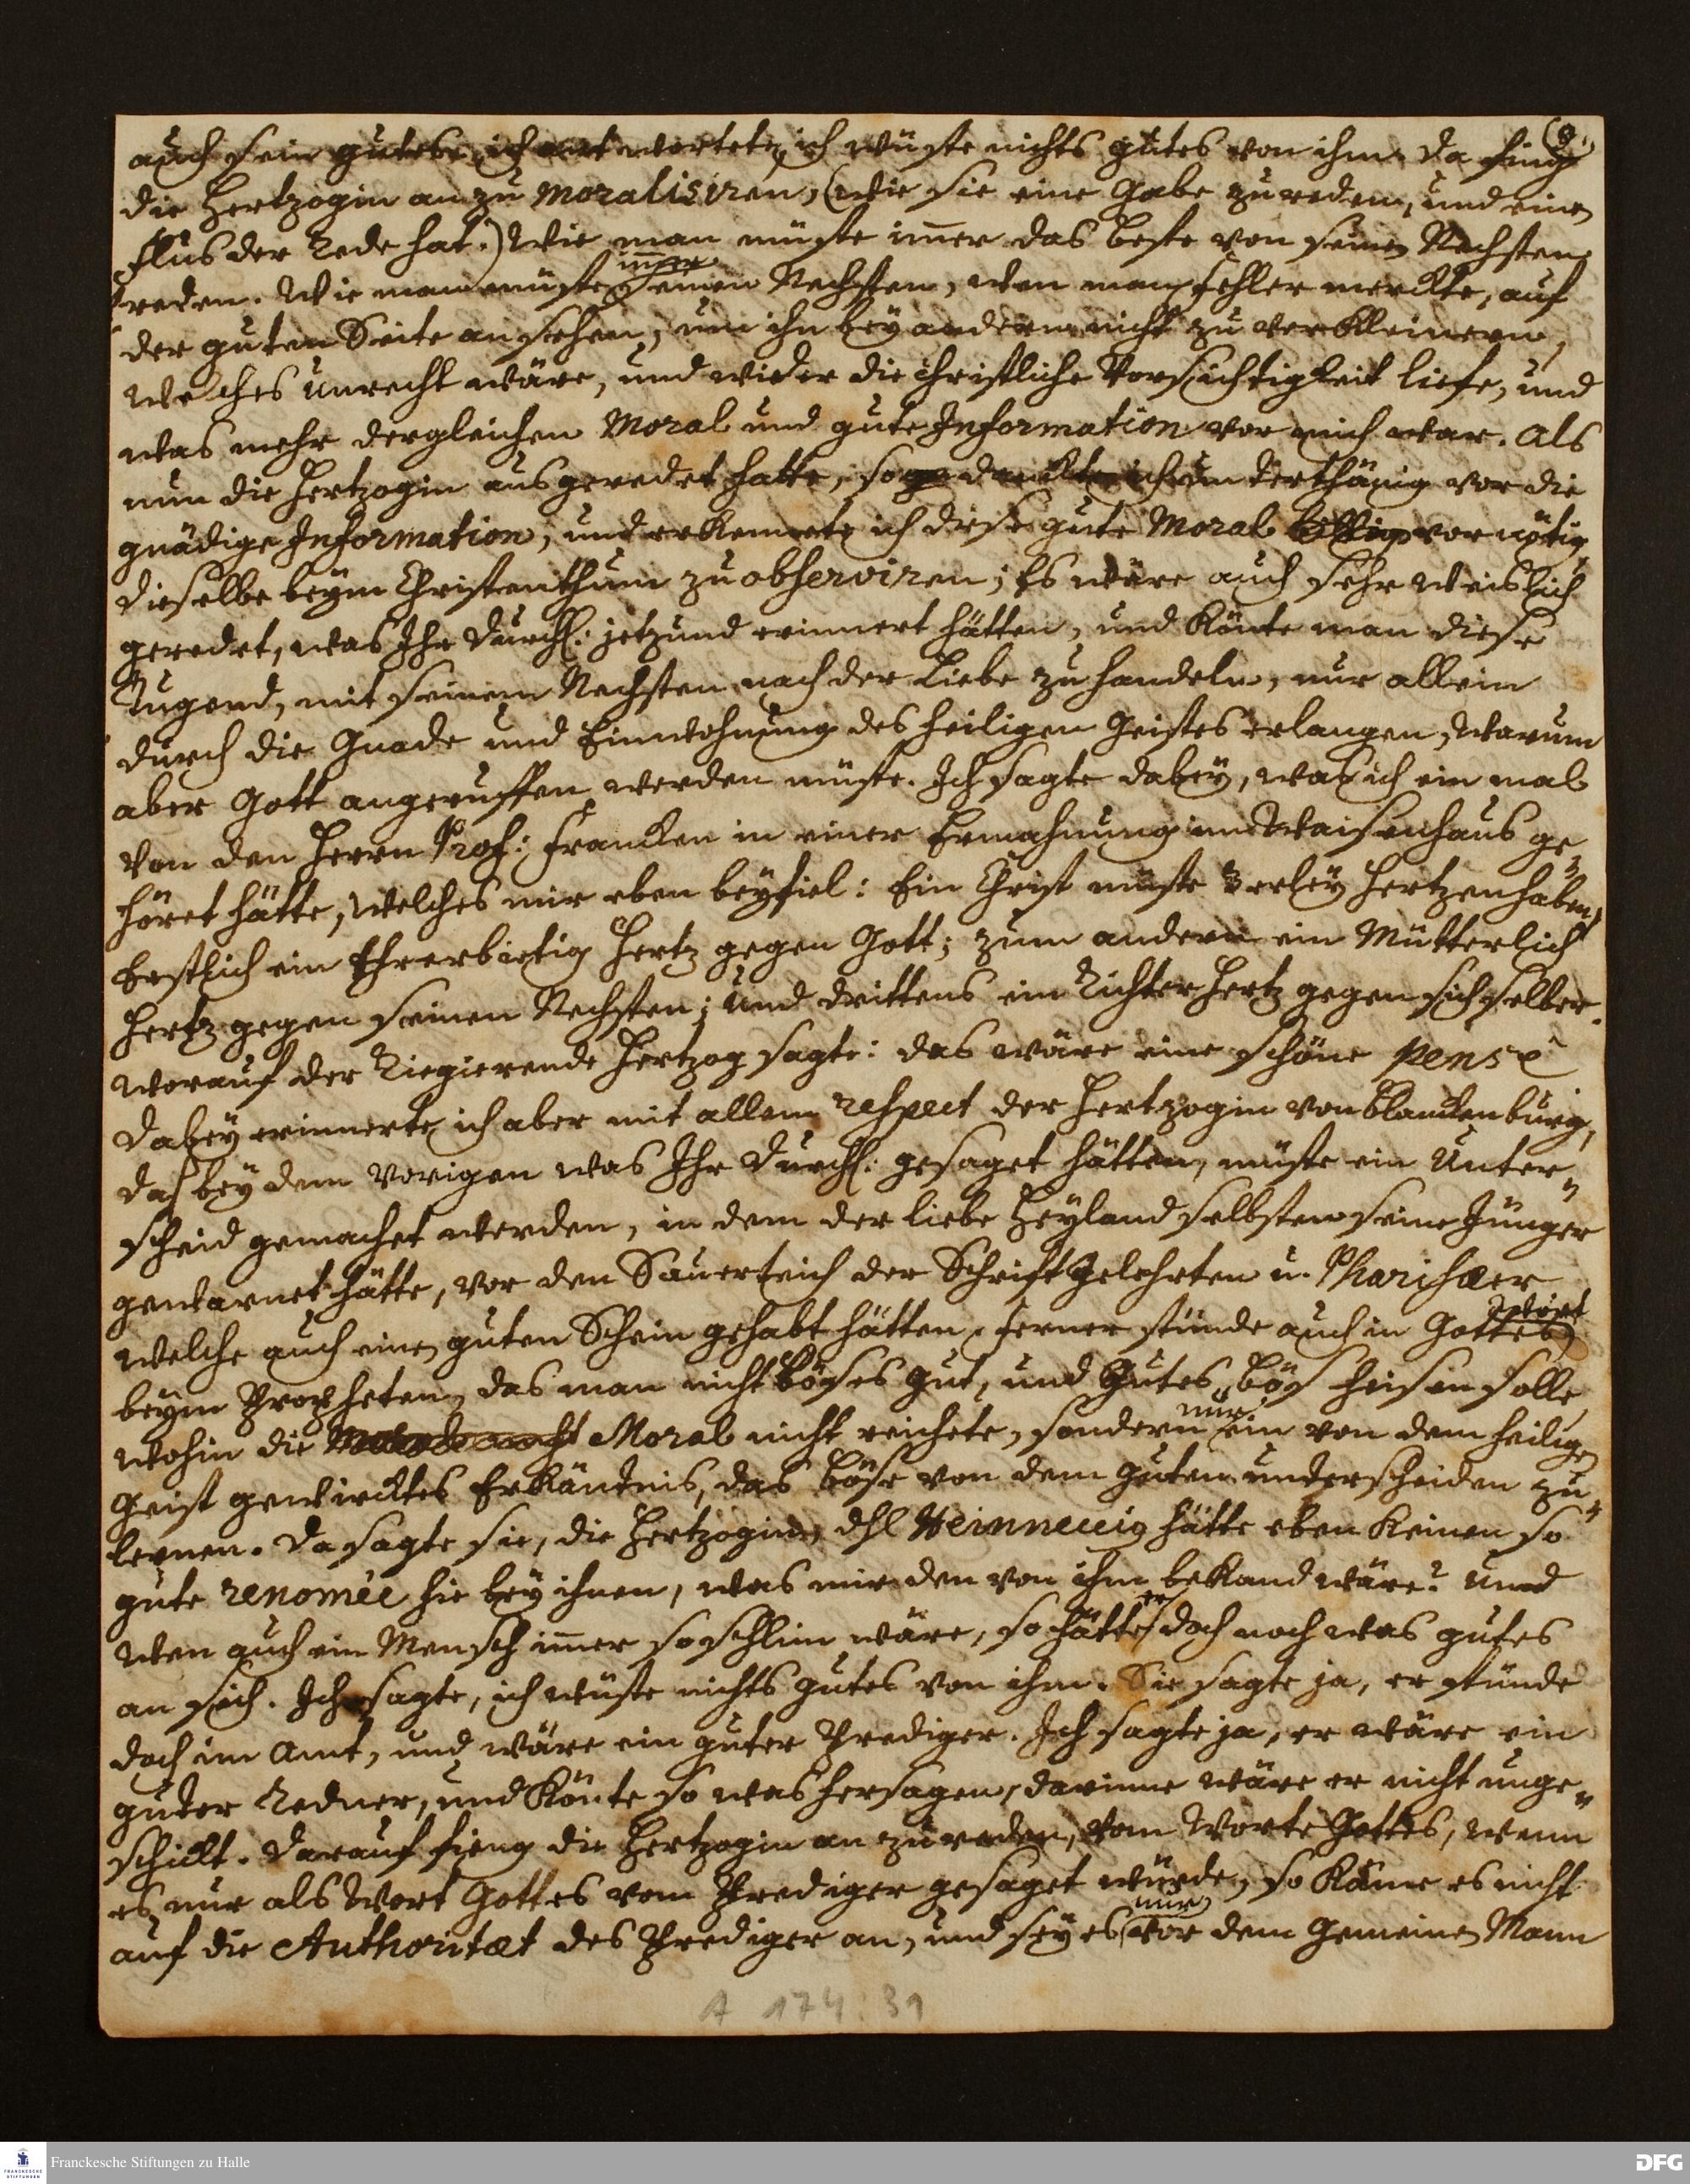 auch sein gutes, ich antwortete, ich wüste nichts gutes von ihm. da fing
die Hertzogin an zu moralisiren, (wie sie eine Gabe zu reden, und einen
flus der Rede hat.) Wie man müste im̅er das beste von seinen Nechsten
reden. Wie man müste im̅er seinen Nechsten, wen man fehler merckte, auf
der guten Seite ansehen, um ihn bey andern nicht zu verkleinern,
welches unrecht wäre, und wieder die christliche Vorsichtigkeit liefe, und
was mehr dergleichen Moral und gute Information vor mich war. Als
nun die Hertzogin ausgeredet hatte, so danckte ich unterthänig vor die
gnädige Information, und erkennete ich diese gute Moral billig vor nötig,
dieselbe beym Christenthum zu observiren; Es wäre auch sehr weislich
geredet, was Ihr Durchl: jetzund erinnert hätten, und könte man diese
Tugend, mit seinem Nechsten nach der Liebe zu handeln, nur allein
durch die Gnade und Einwohnung des heiligen Geistes erlangen, warum
aber Gott angeruffen werden müste. Ich sagte dabey, was ich ein mal
von den Herrn Prof: Francken in einer Ermahnung im Waisenhaus ge=
höret hätte, welches mir eben beyfiel: Ein Christ müste 3 erley Hertzen haben,
Erstlich ein Ehrerbietig Hertz gegen Gott; zum andern ein Mütterlich
Hertz gegen seinen Nechsten; und drittens ein Richter Hertz gegen sich selber.
Worauf der Regierende Hertzog sagte: das wäre eine schöne pensé
Dabey erinnerte ich aber mit allem respect der Hertzogin von Blanckenburg,
das bey dem vorigen was Ihr Durchl: gesaget hätten, müste ein Unter=
scheid gemachet werden, in dem der liebe Heyland selbsten seine Jünger
gewarnet hätte, vor den Sauerteich der Schrifft Gelehrten u. Pharisæer
welche auch einen guten Schein gehabt hätten, ferner stünde auch in Gottes Wort
beym Propheten, das man nicht böses gut, und Gutes bös heisen solle,
wohin die Moral nicht reichete, sondern nur ein von dem heiligen
Geist gewircktes Erkäntnis, das böse von dem guten underscheiden zu=
lernen. Da sagte sie, die Hertzogin, dhl Heinneccig hätte eben keinen so
gute renomée hie bey ihnen, was mir den von ihm bekand wäre? Und
wen auch ein Mensch im̅er so schlim wäre, so hätte er doch noch was gutes
an sich. Ich sagte, ich wüste nichts gutes von ihm. Sie sagte ja, er stünde
doch im Amt, und wäre ein guter Prediger. Ich sagte ja, er wäre ein
guter Redner, und könte so was hersagen, darinne wäre er nicht unge=
schickt. Darauf fieng die Hertzogin an zu reden, vom Worte Gottes, wenn
es nur als Wort Gottes vom Prediger gesaget würde, so käme es nicht
auf die Authoritæt des Prediger an, und sey es nur vor dem Gemeinen Mann
A 174:31
Franckesche Stiftungen zu Halle
DFG